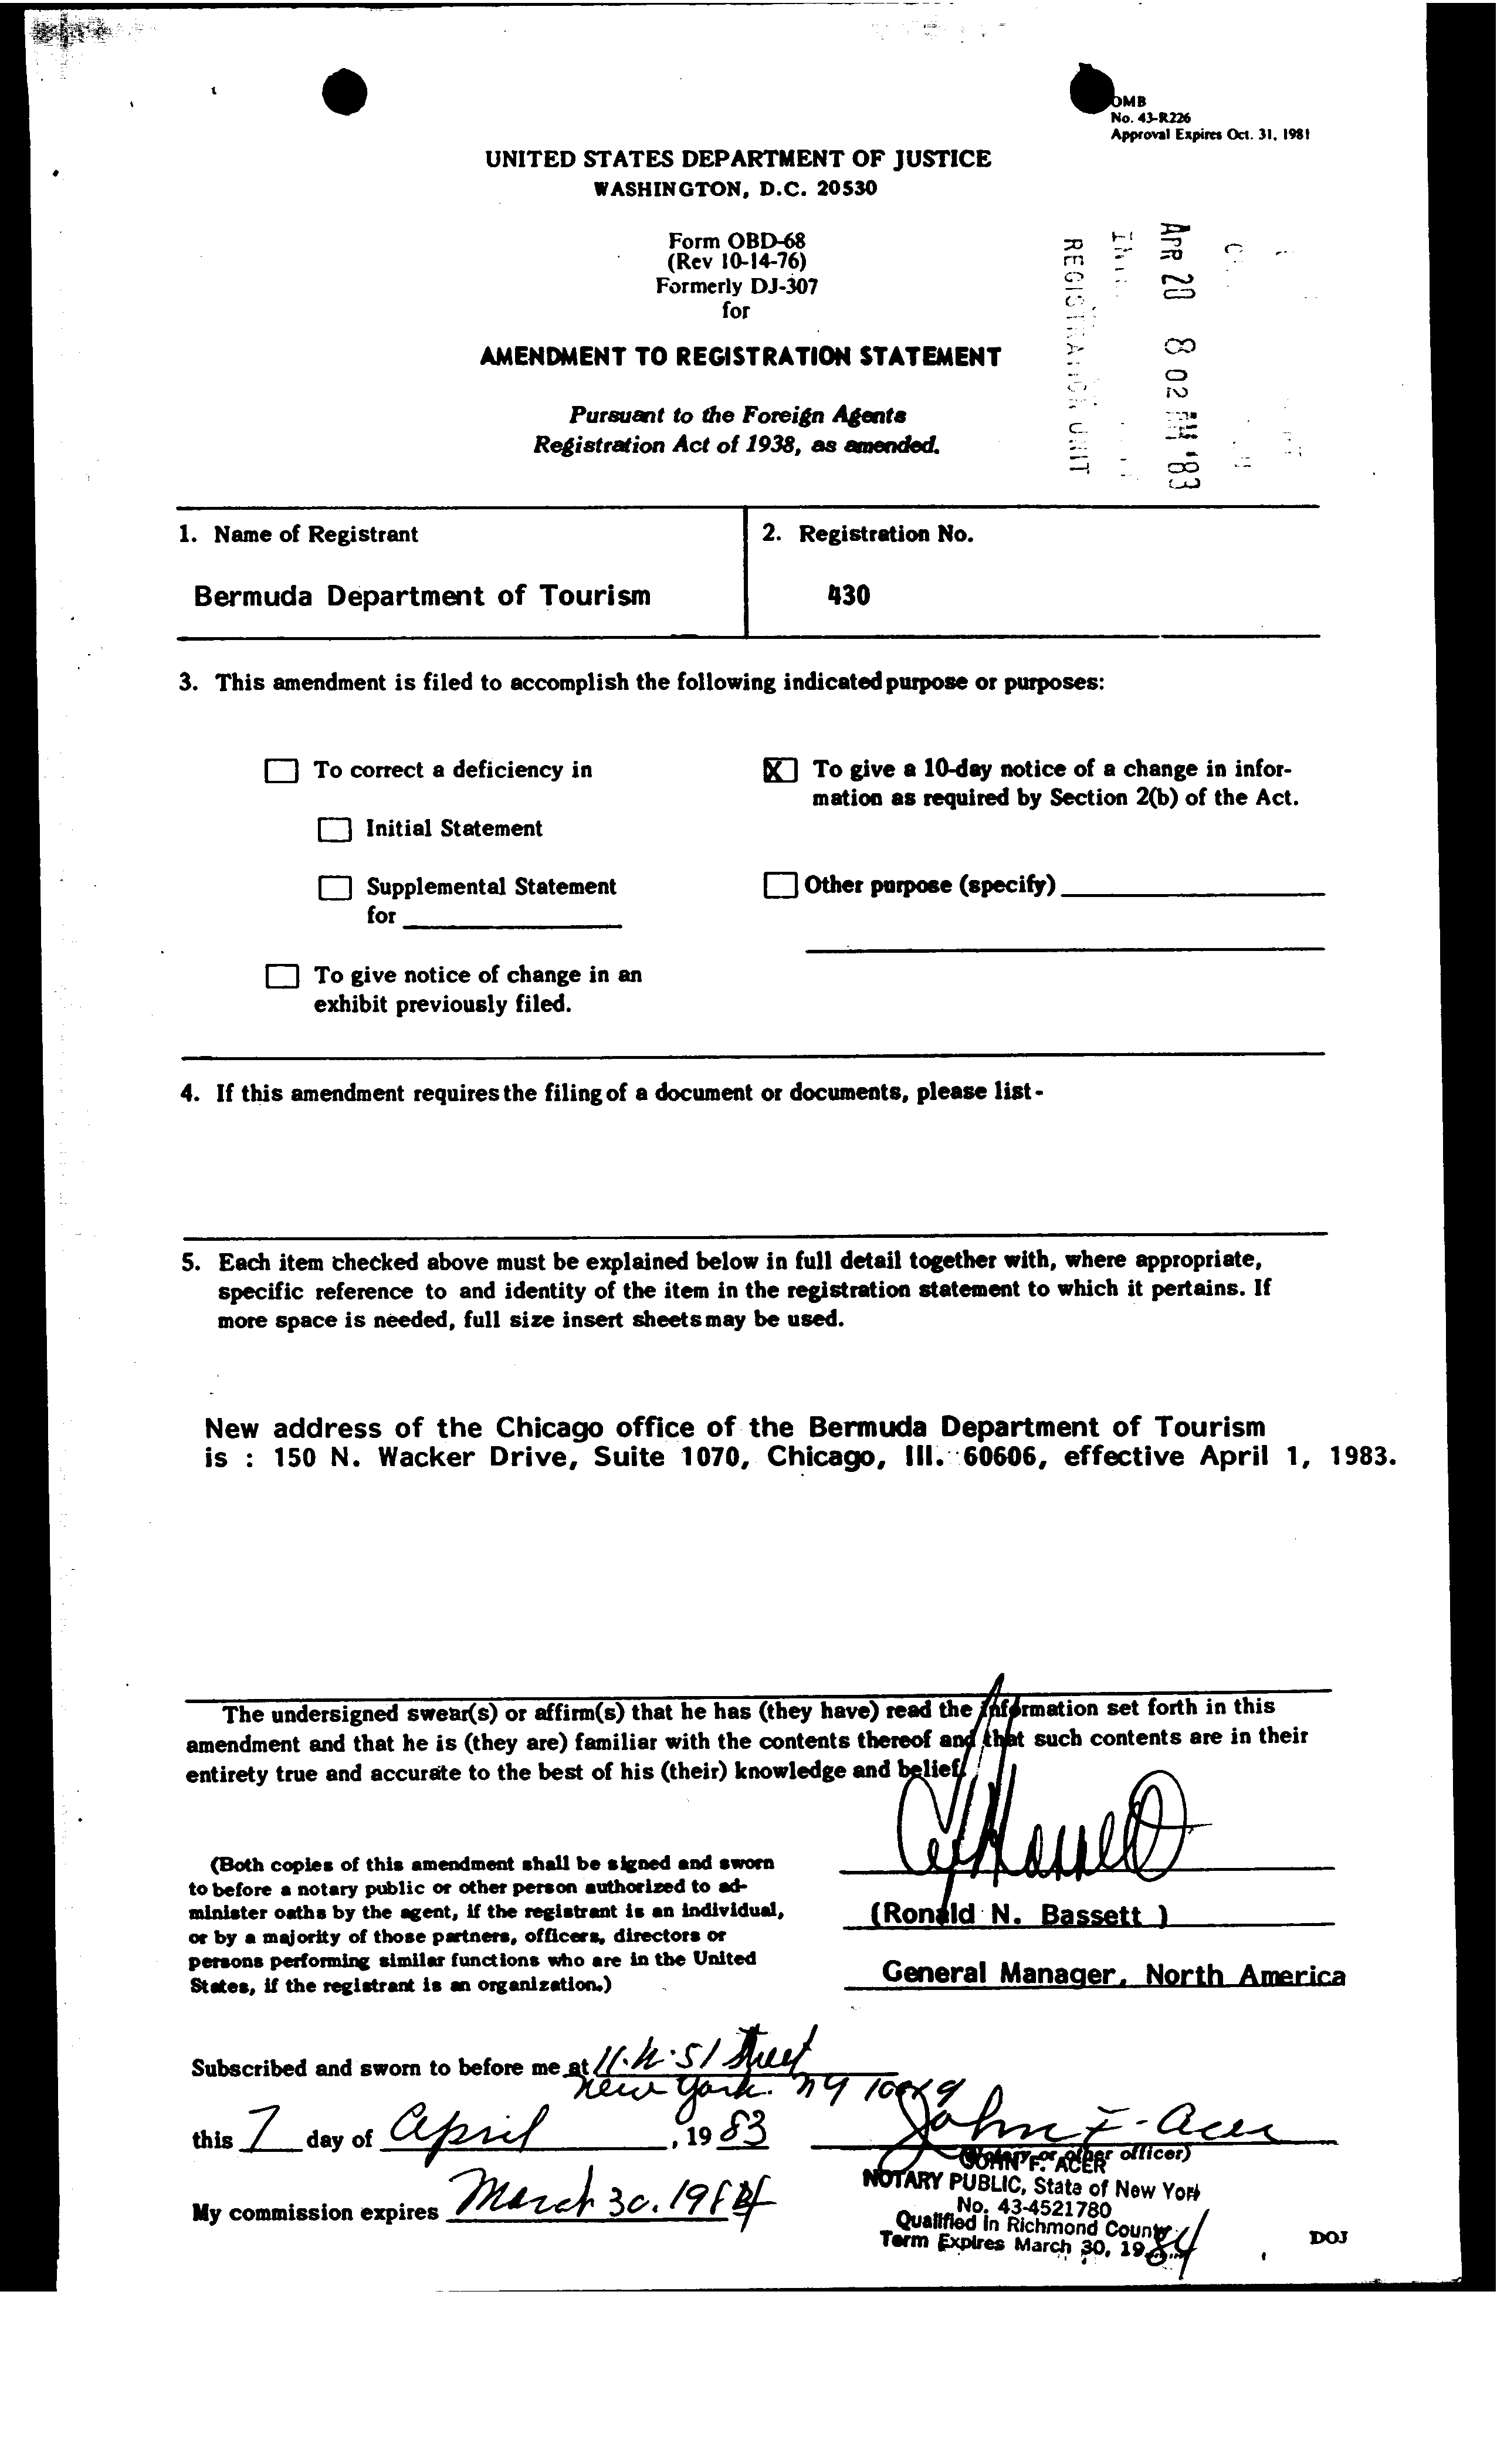 OMB
No. 43-R226
Approval Expires Oct. 31, 1981
UNITED STATES DEPARTMENT OF JUSTICE
WASHINGTON, D.C. 20530
Form OBD-68
(Rev 10-14-76)
Formerly DJ-307
for
AMENDMENT TO REGISTRATION STATEMENT
Pursuant to the Foreign Agents
Registration Act of 1938, as amended.
APR 20 8 02 AM '83
REGISTRATION UNIT
1. Name of Registrant
Bermuda Department of Tourism
2. Registration No.
430
3. This amendment is filed to accomplish the following indicated purpose or purposes:
To correct a deficiency in
Initial Statement
Supplemental Statement
for
To give notice of change in an
exhibit previously filed.
X To give a 10-day notice of a change in infor-
mation as required by Section 2(b) of the Act.
Other purpose (specify)
4. If this amendment requires the filing of a document or documents, please list -
5. Each item checked above must be explained below in full detail together with, where appropriate,
specific reference to and identity of the item in the registration statement to which it pertains. If
more space is needed, full size insert sheets may be used.
New address of the Chicago office of the Bermuda Department of Tourism
is : 150 N. Wacker Drive, Suite 1070, Chicago, Ill. 60606, effective April 1, 1983.
The undersigned swear(s) or affirm(s) that he has (they have) read the information set forth in this
amendment and that he is (they are) familiar with the contents thereof and that such contents are in their
entirety true and accurate to the best of his (their) knowledge and belief.
(Both copies of this amendment shall be signed and sworn
to before a notary public or other person authorized to ad-
minister oaths by the agent, if the registrant is an individual,
or by a majority of those partners, officers, directors or
persons performing similar functions who are in the United
States, if the registrant is an organization.)
(Ronald N. Bassett )
General Manager, North America
Subscribed and sworn to before me at 11. W. 51 Street
New York. NY
this 7 day of April, 1983
John F. Acer
(Notary or other officer)
JOHN F. ACER
NOTARY PUBLIC, State of New York
No. 43-4521780
Qualified in Richmond County
Term Expires March 30, 1984
My commission expires March 30. 1984
DOJ